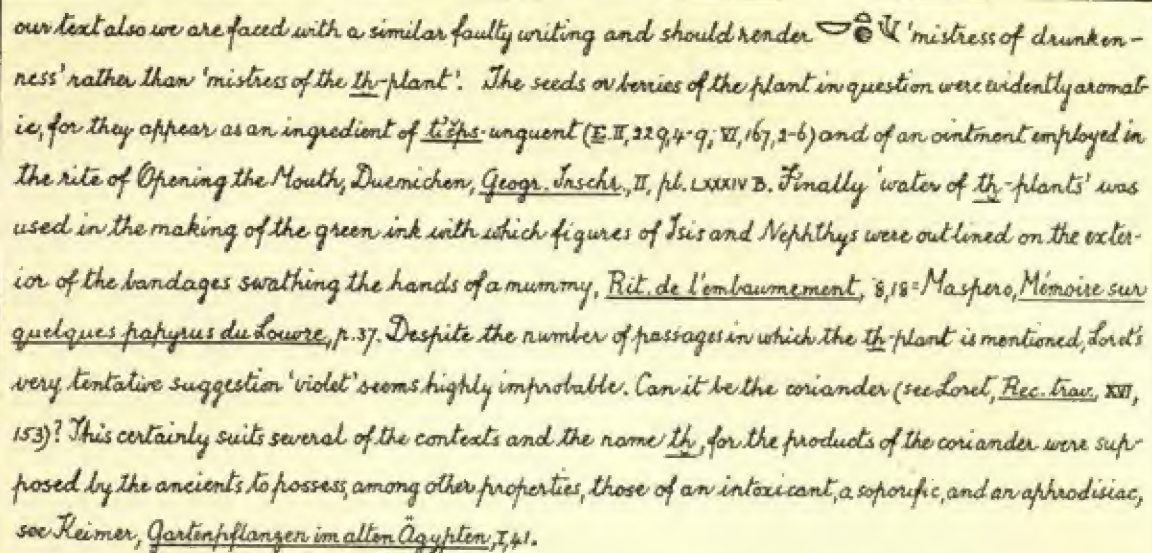 our text also we are faced with a similar faulty writing and should render 'mistress of drunken-
ness' rather than 'mistress of the tḫ-plant'. The seeds or berries of the plant in question were evidently aromat-
ic, for they appear as an ingredient of ti'šps-unguent (E. II, 229, 4-9; VI, 167, 2-6) and of an ointment employed in
the rite of Opening the Mouth, Duemichen, Geogr. Inschr., II, pl. LXXXIV B. Finally 'water of tḫ-plants' was
used in the making of the green ink with which figures of Isis and Nephthys were outlined on the exter-
ior of the bandages swathing the hands of a mummy, Rit. de l'embaumement, 8,18 = Maspero, Mémoire sur
quelques papyrus du Louvre, p. 37. Despite the number of passages in which the tḫ-plant is mentioned, Loret's
very tentative suggestion 'violet' seems highly improbable. Can it be the coriander (see Loret, Rec. trav., XVI,
153)? This certainly suits several of the contexts and the name tḫ, for the products of the coriander were sup-
posed by the ancients to possess, among other properties, those of an intoxicant, a soporific, and an aphrodisiac,
see Keimer, Gartenpflanzen im alten Ägypten, I, 41.